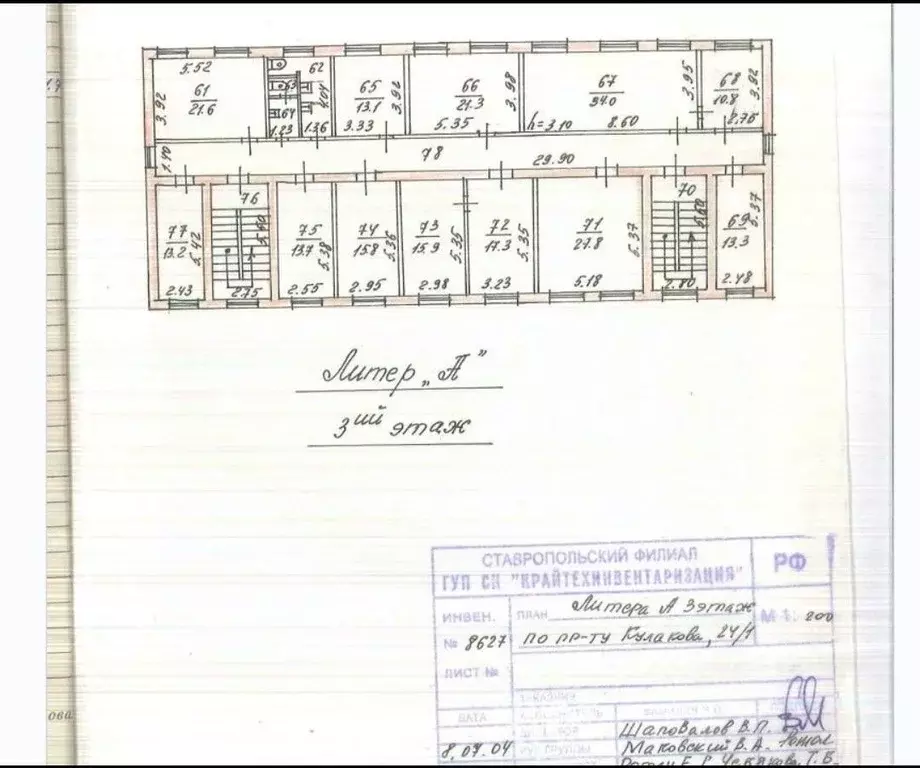 5.52
61
21.6
3.92
62
63
64
1.23
1.36
4.04
65
13.1
3.92
3.33
66
21.3
3.98
5.35
67
34.0
3.95
h=3.10
8.60
68
10.8
3.92
2.76
1.90
78
29.90
77
13.2
5.42
2.43
76
5.60
2.75
75
13.7
5.38
2.55
74
15.8
5.36
2.95
73
15.9
5.36
2.98
72
17.3
5.35
3.23
71
27.8
5.37
5.18
70
5.60
2.80
69
13.3
5.37
2.48
Литер „А"
3ий этаж
СТАВРОПОЛЬСКИЙ ФИЛИАЛ
ГУП СК "КРАЙТЕХИНВЕНТАРИЗАЦИЯ"
РФ
ИНВЕН.
№ 8627
ПЛАН Литера А 3этаж
по пр-ту Кулакова, 24/1
М 1: 200
ЛИСТ №
ДАТА
8,07.04
Шаповалов В.П.
Маковский В.А.